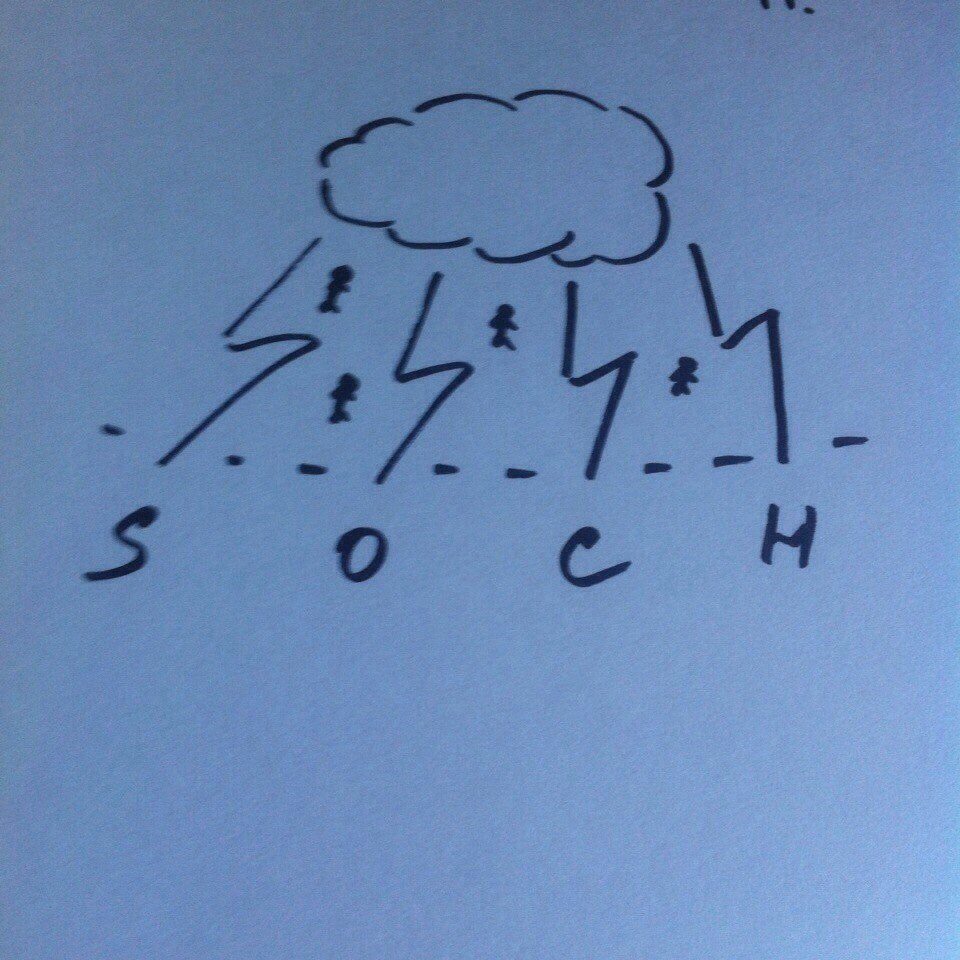 S O C H